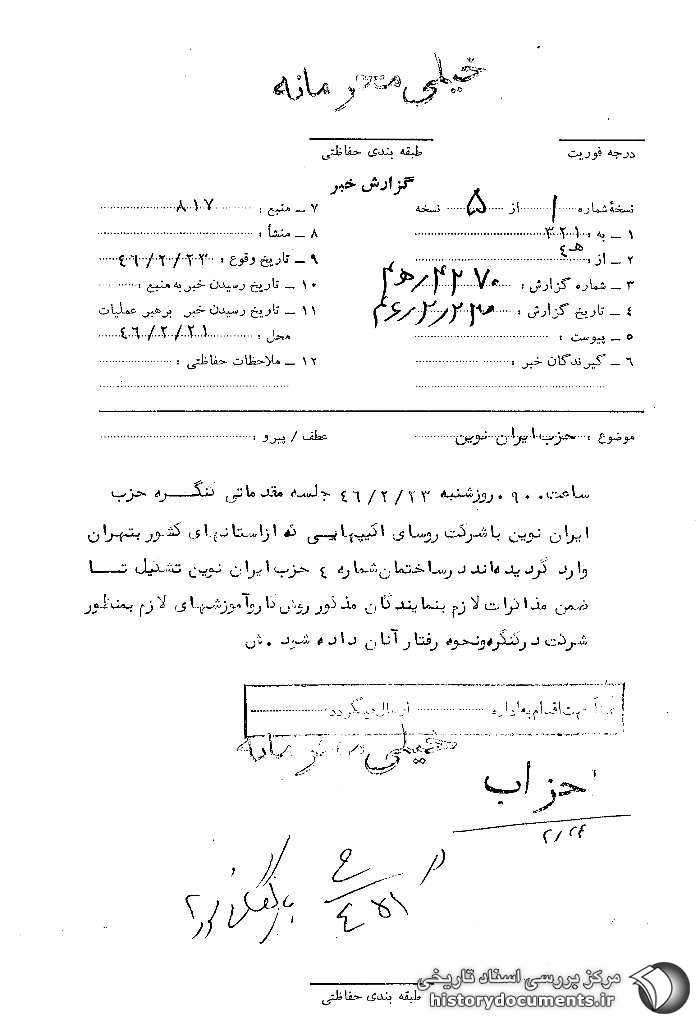 خیلی محرمانه
درجه فوریت
طبقه بندی حفاظتی
گزارش خبر
نسخهٔ شماره ۱ از ۵ نسخه
۱ ـ به : ۳۲۱
۲ ـ از : ه‍ ۴
۳ ـ شماره گزارش :
۴ ـ تاریخ گزارش :
۵ ـ پیوست :
۶ ـ گیرندگان خبر :
۷ ـ منبع : ۸۱۷
۸ ـ منشأ :
۹ ـ تاریخ وقوع :
۱۰ ـ تاریخ رسیدن خبر به منبع :
۱۱ ـ تاریخ رسیدن خبر برهبر عملیات
محل : ۴۶/۲/۲۱
۱۲ ـ ملاحظات حفاظتی :
موضوع : حزب ایران نوین
عطف / پیرو :
ساعت ۰۹۰۰ روزشنبه ۴۶/۲/۲۳ جلسه مقدماتی کنگـــره حزب
ایران نوین باشرکت روسای اکیپهایـــی که ازاستانهای کشور بتهران
وارد گردیده‌اند درساختمان شماره ۴ حزب ایران نوین تشکیل تـــا
ضمن مذاکرات لازم بنمایندگان مذکور روش کاروآموزشهای لازم بمنظور
شرکت درکنگره‌ونحوه رفتار آنان داده شود .ش
جهت اقدام به اداره ارسال میگردد
خیلی محرمانه
احزاب
۲/۲۴
طبقه بندی حفاظتی
مرکز بررسی اسناد تاریخی
historydocuments.ir